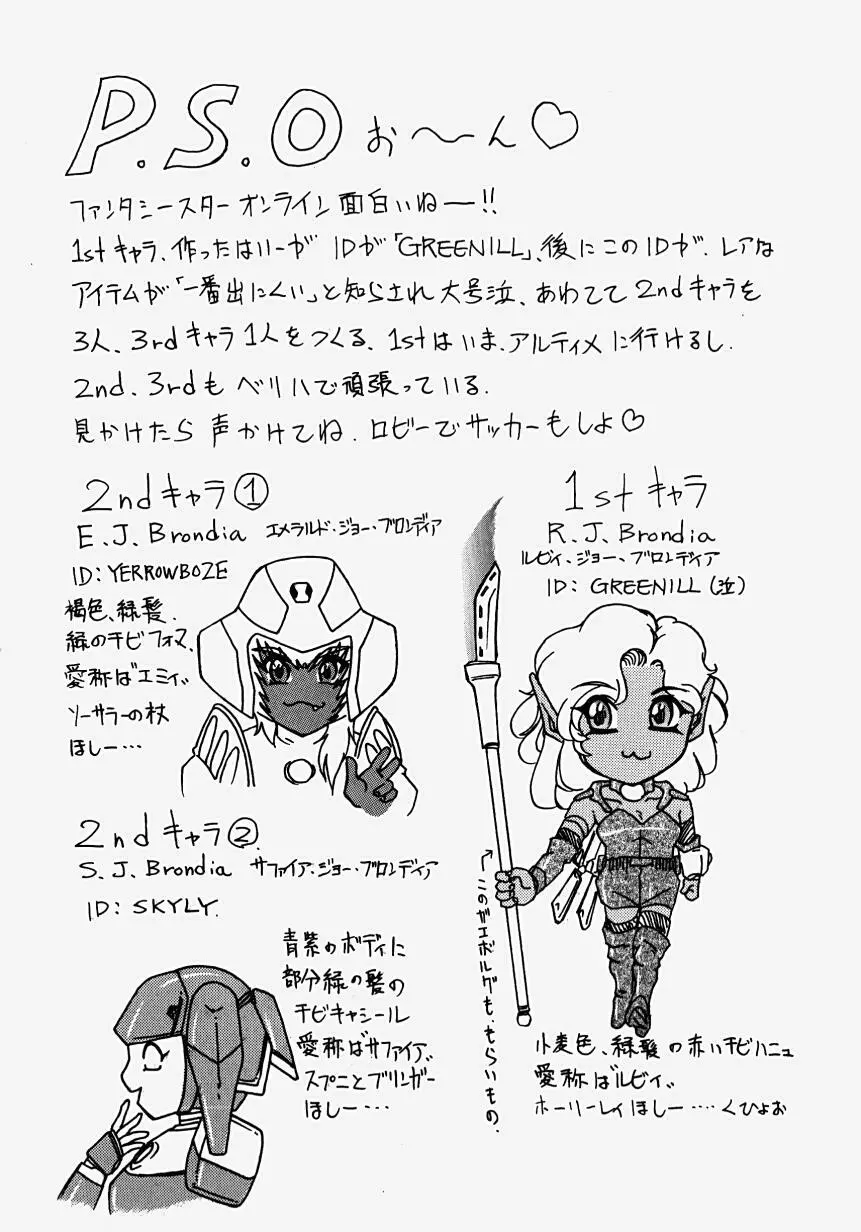 P.S.O お〜ん♡
ファンタシースターオンライン面白いねー!!
1stキャラ、作ったはいーが IDが「GREENILL」、後にこのIDが、レアな
アイテムが「一番出にくい」と知らされ大号泣、あわてて2ndキャラを
3人、3rdキャラ1人をつくる、1stはいま、アルティメに行けるし、
2nd、3rdもベリハで頑張っている。
見かけたら声かけてね。ロビーでサッカーもしよ♡
2ndキャラ①
E.J.Brondia エメラルド・ジョー・ブロンディア
ID: YERROWBOZE
褐色、緑髪、
緑のチビフォマ、
愛称ばエミィ、
ソーサラーの杖
ほしー…
1stキャラ
R.J.Brondia
ルビィ・ジョー・ブロンディア
ID: GREENILL(泣)
↑このガエボルグも、もらいもの。
小麦色、緑髪の赤いチビハニュ
愛称ばルビィ、
ホーリーレイほしー……くひょお
2ndキャラ②
S.J.Brondia サファイア・ジョー・ブロンディア
ID: SKYLY.
青紫のボディに
部分緑の髪の
チビキャシール
愛称ばサファイア、
スプニとブリンガー
ほしー…